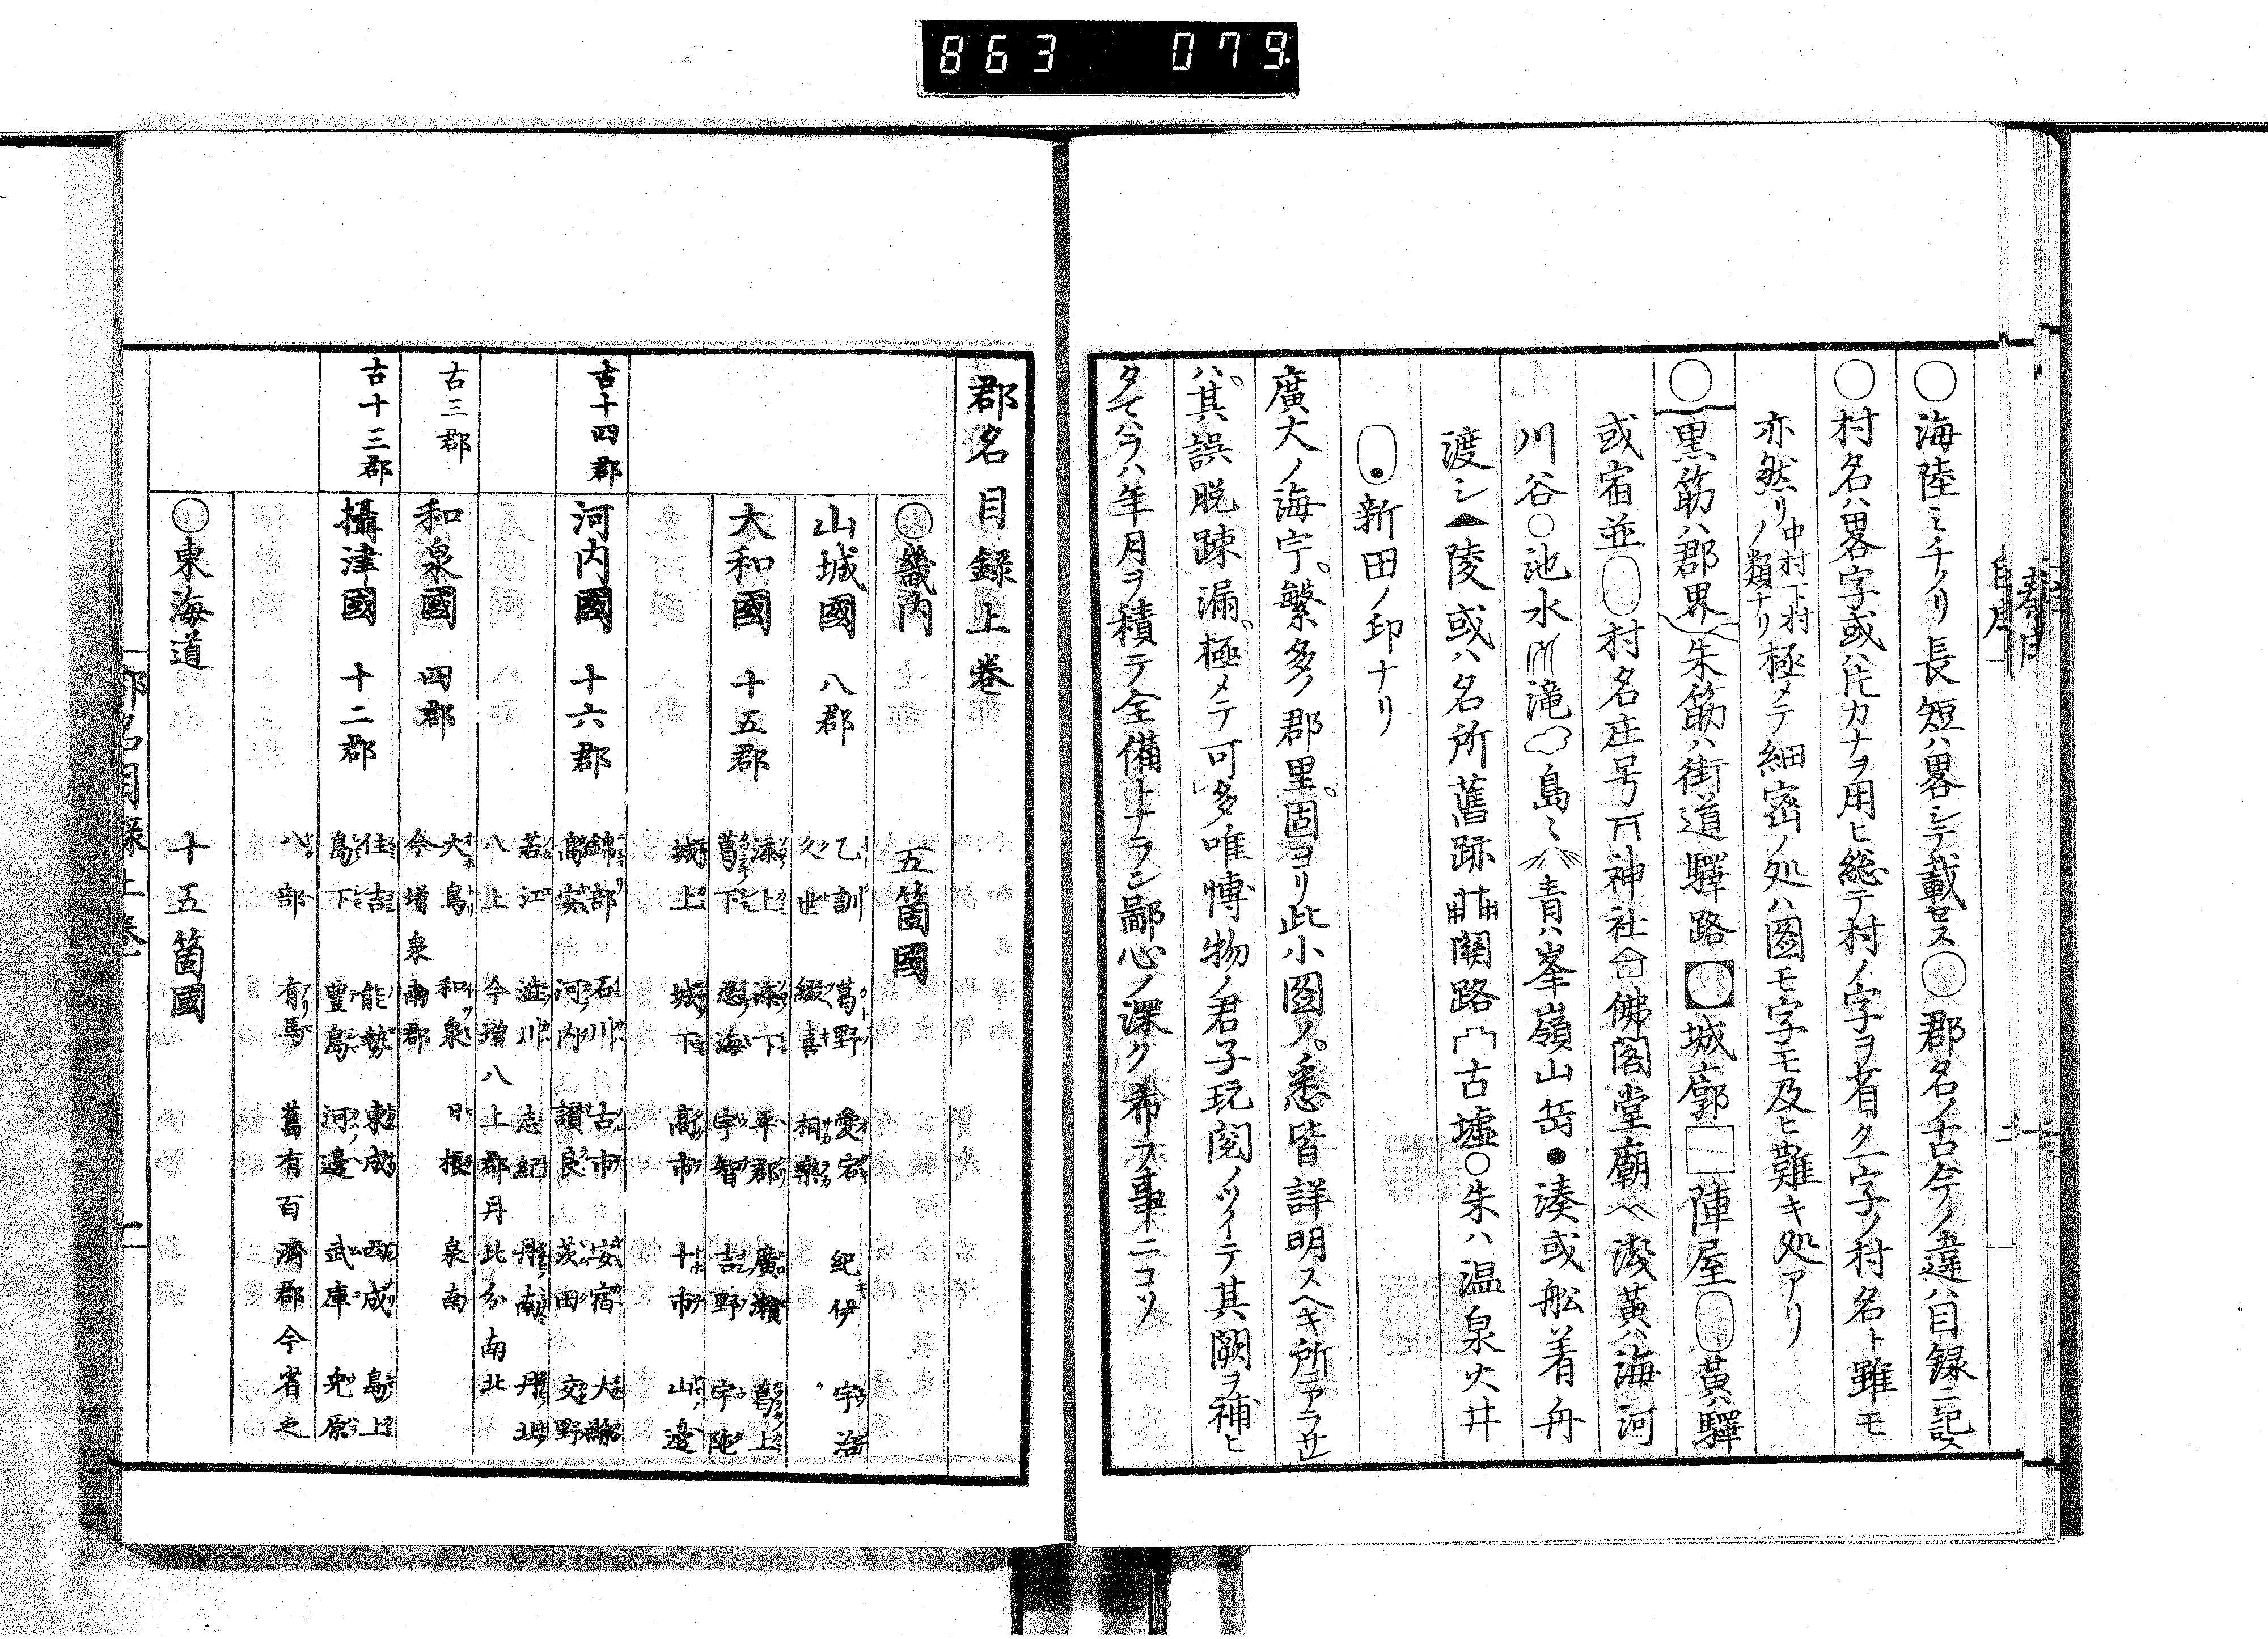 863 079
○海陸ミチノリ長短ハ畧シテ載セス○郡名ノ古今ノ違ハ目録ニ記ス
○村名ハ畧字或ハ片カナヲ用ヒ総テ村ノ字ヲ省ク一字ノ村名ト雖モ
亦然リ中村下村ノ類ナリ極メテ細密ノ処ハ図モ字モ及ヒ難キ処アリ
○黒筋ハ郡界朱筋ハ街道驛路城廓陣屋黄ハ驛
或宿並村名庄号神社佛閣堂廟淺黄ハ海河
川谷○池水滝島青ハ峯嶺山岳●湊或舩着舟
渡シ▲陵或ハ名所舊跡關路古墟○朱ハ温泉火井
新田ノ印ナリ
廣大ノ海宇。繁多ノ郡里。固ヨリ此小図ノ。悉皆詳明スヘキ所ニアラサレ
ハ。其誤脱踈漏。極メテ可多唯博物ノ君子玩閲ノツイテ其闕ヲ補ヒ
タマハラハ年月ヲ積テ全備トナラン鄙心ノ深ク希フ事ニコソ
郡名目録上巻
○畿内 五箇國
山城國 八郡 乙訓 葛野 愛宕 紀伊 宇治
久世 綴喜 相樂
大和國 十五郡 添上 添下 平郡 廣瀬 葛上
葛下 忍海 宇智 吉野 宇陀
城上 城下 高市 十市 山邊
古十四郡 河内國 十六郡 錦部 石川 古市 安宿 大縣
高安 河内 讃良 茨田 交野
若江 澁川 志紀 丹南 丹北
八上 今増八上郡丹比分南北
古三郡 和泉國 四郡 大鳥 和泉 日根 泉南
今増泉南郡
古十三郡 攝津國 十二郡 住吉 能勢 東成 西成 島上
島下 豊島 河邊 武庫 兎原
八部 有馬 舊有百濟郡今省之
○東海道 十五箇國
郡名目録上巻 一